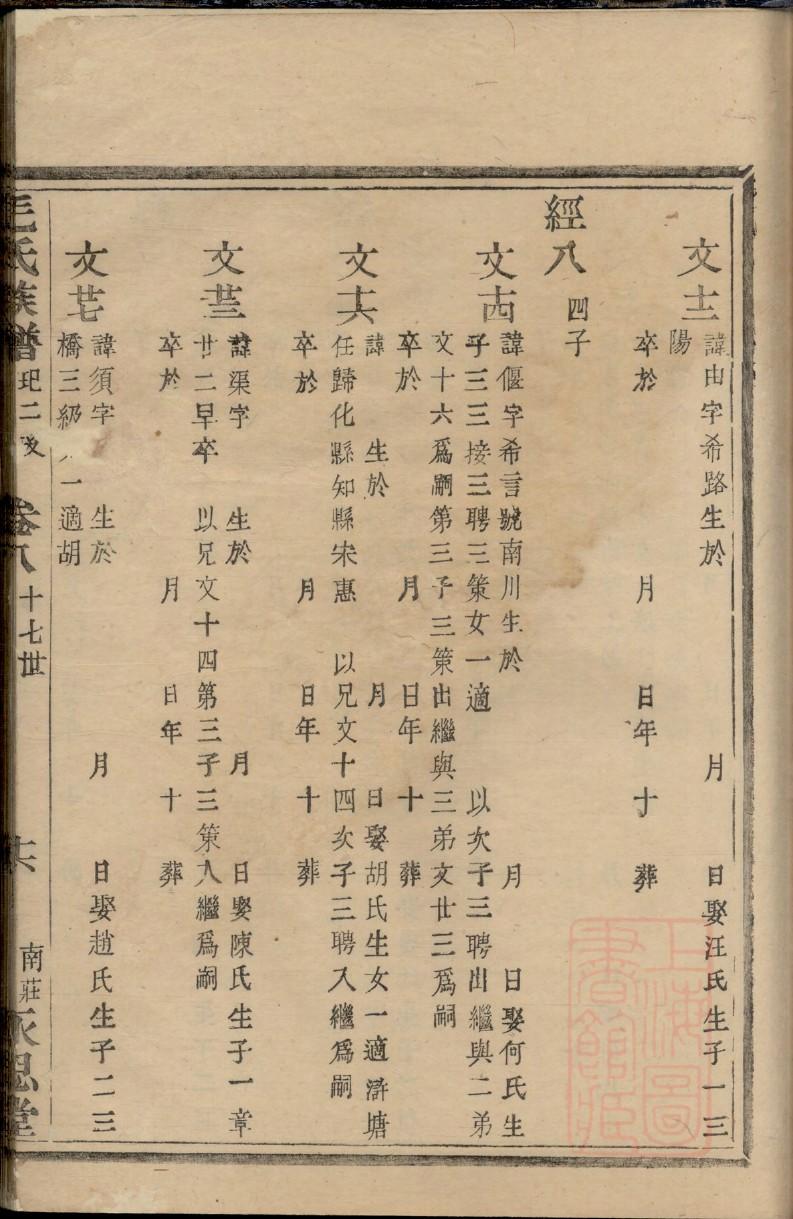 文十二
諱由字希路生於 月 日娶汪氏生子一三
陽
卒於 月 日年 十 葬
經八 四子
文十四
諱偃字希言號南川生於 月 日娶何氏生
子三三接三聘三策女一適 以次子三聘出繼與二弟
文十六爲嗣第三子三策出繼與三弟文廿三爲嗣
卒於 月 日年 十 葬
文十六
諱 生於 月 日娶胡氏生女一適滸塘
任歸化縣知縣宋惠 以兄文十四次子三聘入繼爲嗣
卒於 月 日年 十 葬
文廿三
諱渠字 生於 月 日娶陳氏生子一章
廿二早卒 以兄文十四第三子三策入繼爲嗣
卒於 月 日年 十 葬
文廿七
諱須字 生於 月 日娶趙氏生子二三
橋三級 一適胡
毛氏族譜 二 卷八 十七世 十六 南莊永思堂
上海圖書館藏